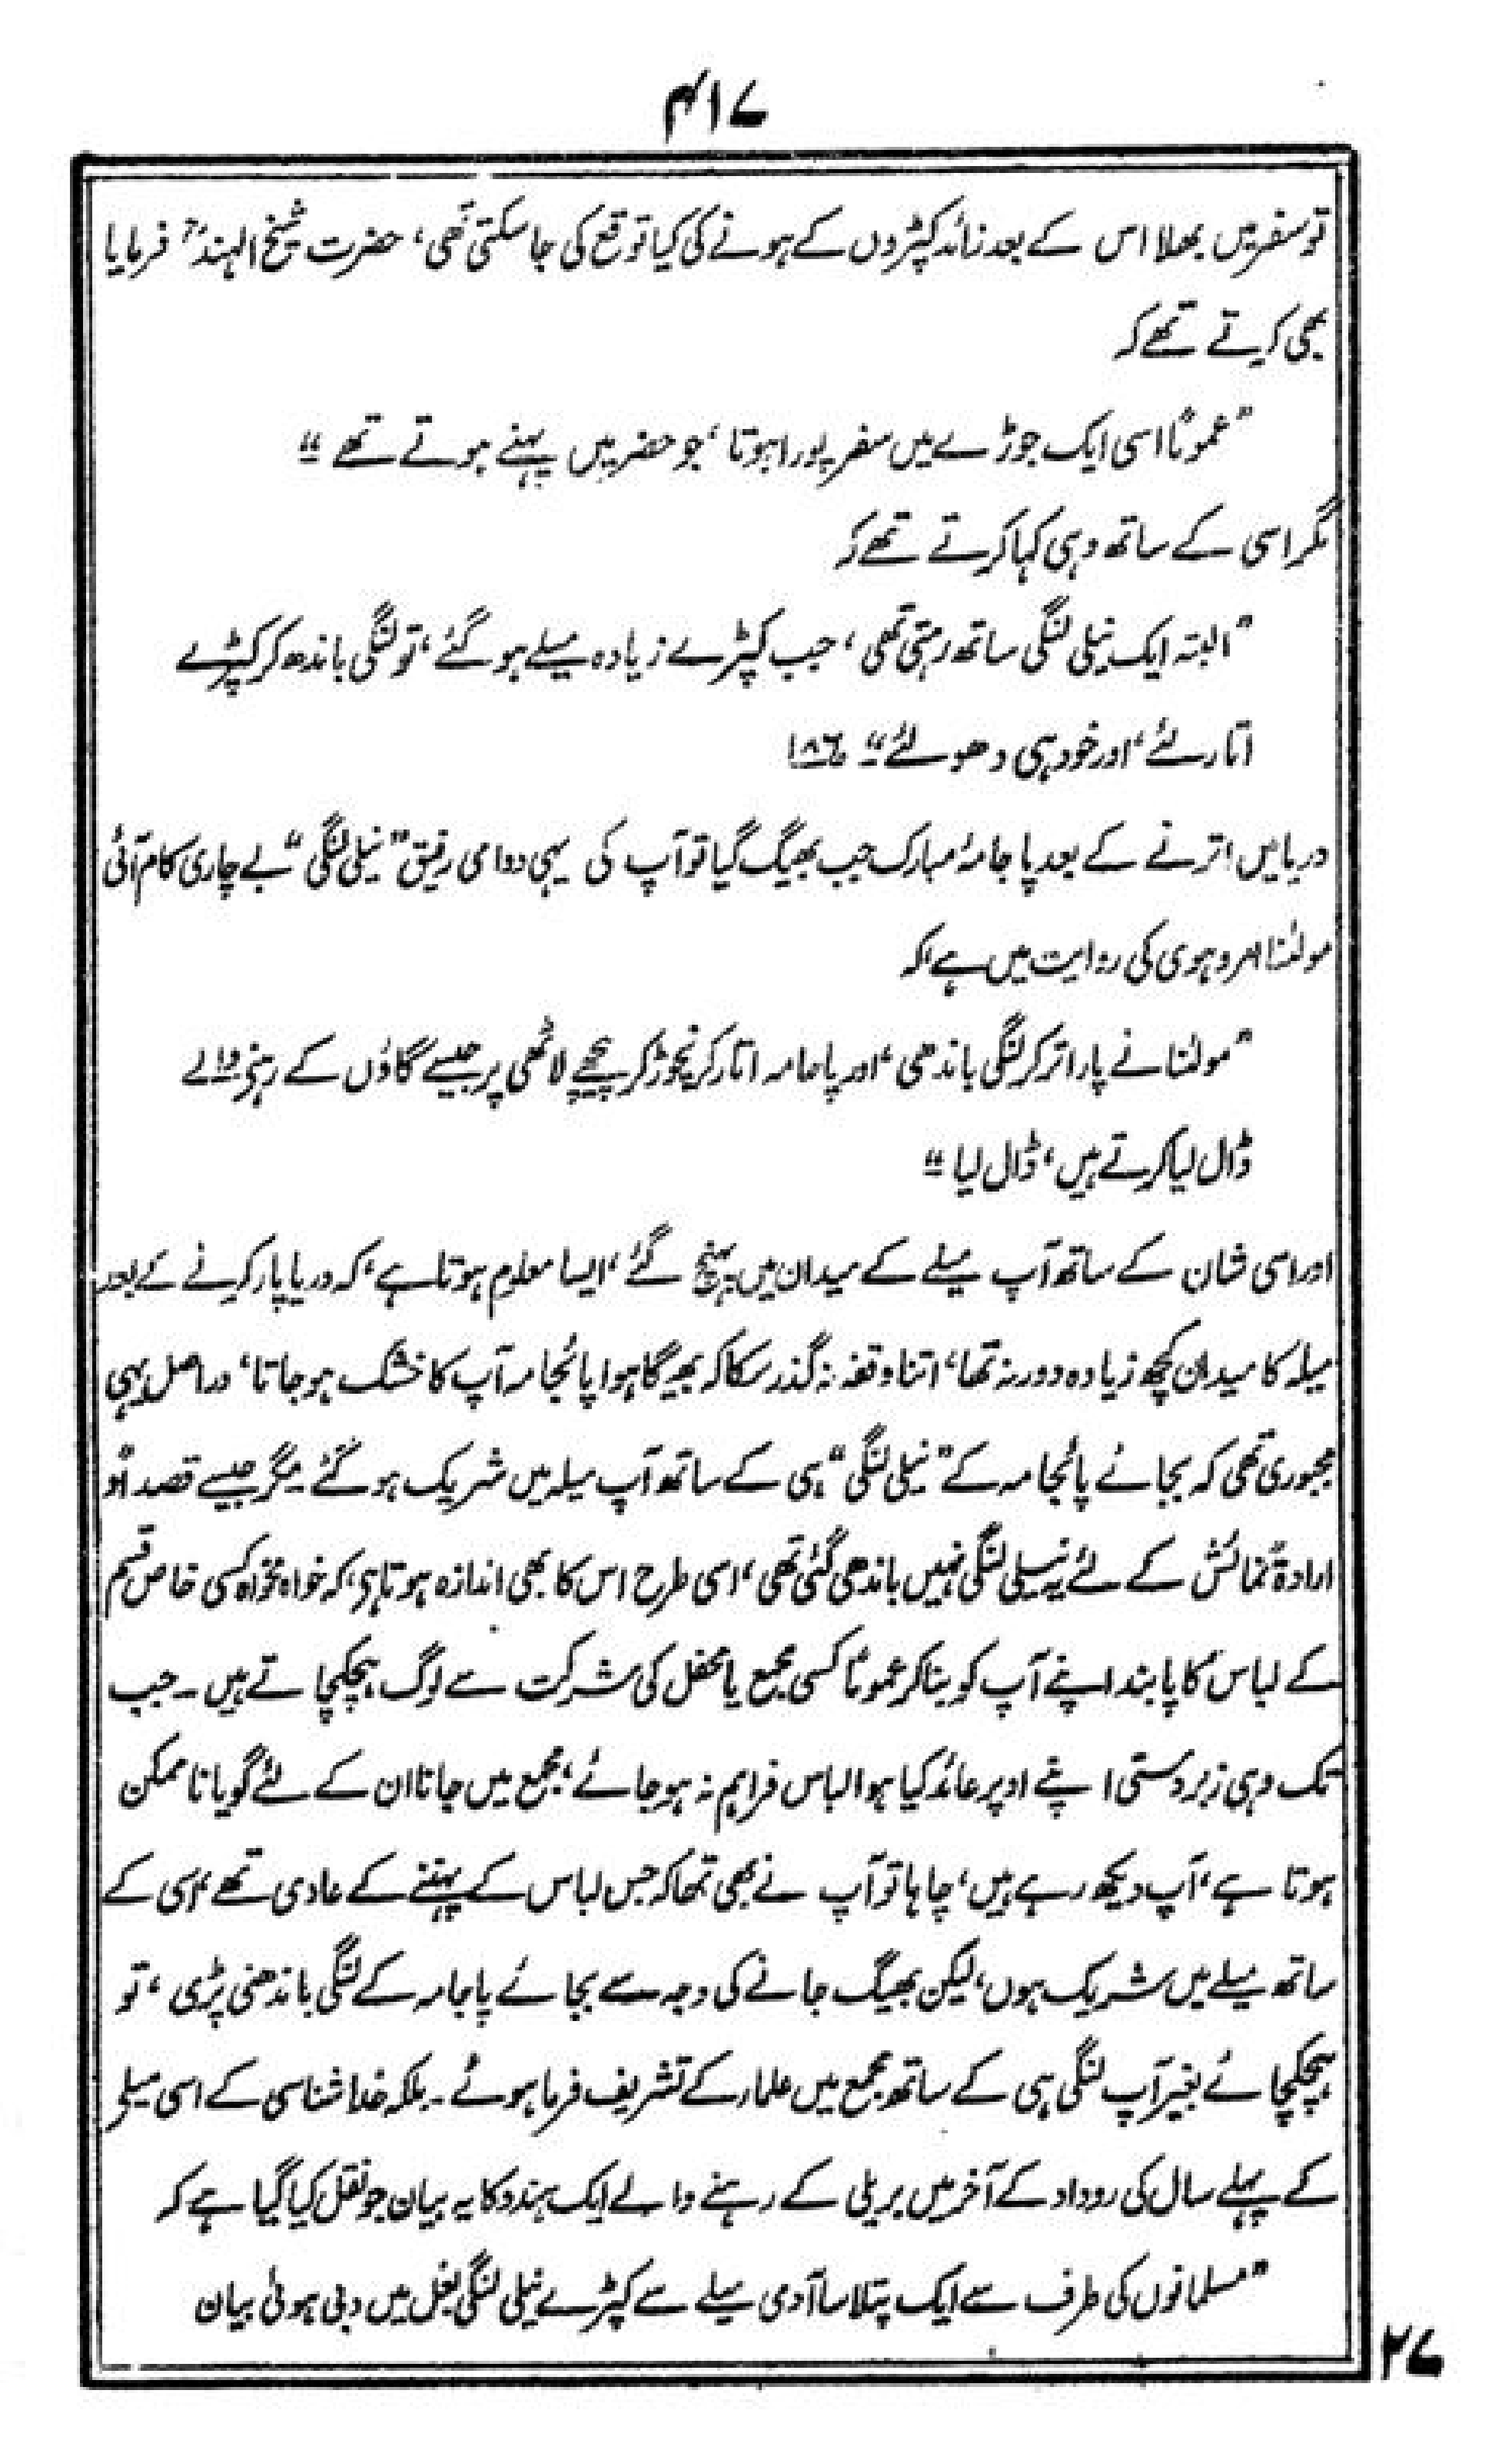 ۴۱۷
تو سفر میں بھلا اس کے بعد زائد کپڑوں کے ہونے کی کیا توقع کی جا سکتی تھی، حضرت شیخ الہندؒ فرمایا
بھی کرتے تھے کہ
”عموماً اسی ایک جوڑے میں سفر پورا ہوتا، جو حضر میں پہنے ہوتے تھے“
مگر اسی کے ساتھ وہی کہا کرتے تھے کہ
”البتہ ایک نیلی لنگی ساتھ رہتی تھی، جب کپڑے زیادہ میلے ہو گئے، تو لنگی باندھ کر کپڑے
اتار لئے، اور خود ہی دھو لئے“ ص۱۸۶
دریا میں اترنے کے بعد پاجامۂ مبارک جب بھیگ گیا تو آپ کی یہی دوامی رفیق ”نیلی لنگی“ بے چاری کام آئی
مولٰنا امروہوی کی روایت میں ہے، کہ
”مولٰنا نے پار اتر کر لنگی باندھی، اور پاجامہ اتار کر نچوڑ کر پیچھے لاٹھی پر جیسے گاؤں کے رہنے والے
ڈال لیا کرتے ہیں، ڈال لیا“
اور اسی شان کے ساتھ آپ میلے کے میدان میں پہنچ گئے، ایسا معلوم ہوتا ہے، کہ دریا پار کرنے کے بعد
میلہ کا میدان کچھ زیادہ دور نہ تھا، اتنا وقفہ نہ گذر سکا کہ بھیگا ہوا پائجامہ آپ کا خشک ہو جاتا، دراصل یہی
مجبوری تھی کہ بجائے پائجامہ کے ”نیلی لنگی“ ہی کے ساتھ آپ میلہ میں شریک ہو گئے۔ مگر جیسے قصداً و
ارادۃً نمائش کے لئے یہ نیلی لنگی نہیں باندھی گئی تھی، اسی طرح اس کا بھی اندازہ ہوتا ہی، کہ خواہ مخواہ کسی خاص قسم
کے لباس کا پابند اپنے آپ کو بنا کر عموماً کسی مجمع یا محفل کی شرکت سے لوگ ہچکچاتے ہیں۔ جب
تک وہی زبردستی اپنے اوپر عائد کیا ہوا لباس فراہم نہ ہو جائے، مجمع میں جانا ان کے لئے گویا ناممکن
ہوتا ہے، آپ دیکھ رہے ہیں، چاہا تو آپ نے بھی تھا کہ جس لباس کے پہننے کے عادی تھے، اسی کے
ساتھ میلے میں شریک ہوں، لیکن بھیگ جانے کی وجہ سے بجائے پاجامہ کے لنگی باندھنی پڑی، تو
ہچکچائے بغیر آپ لنگی ہی کے ساتھ مجمع میں علماء کے تشریف فرما ہوئے۔ بلکہ خدا شناسی کے اسی میلہ
کے پہلے سال کی روداد کے آخر میں بریلی کے رہنے والے ایک ہندو کا یہ بیان جو نقل کیا گیا ہے کہ
”مسلمانوں کی طرف سے ایک پتلا سا آدمی میلے سے کپڑے نیلی لنگی بغل میں دبی ہوئی بیان
۲۷